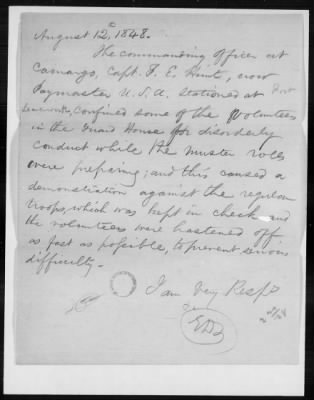 August 12, 1848.
The commanding Officer at
Camargo, Capt. F. E. Hunt, now
Paymaster U.S.A. stationed at Fort
confined some of the Volunteers
in the Guard House for disorderly
conduct while the muster rolls
were preparing; and this caused a
demonstration against the regular
troops, which was kept in check and
the volunteers were hastened off
as fast as possible, to prevent serious
difficulty.
I am Very Resp.